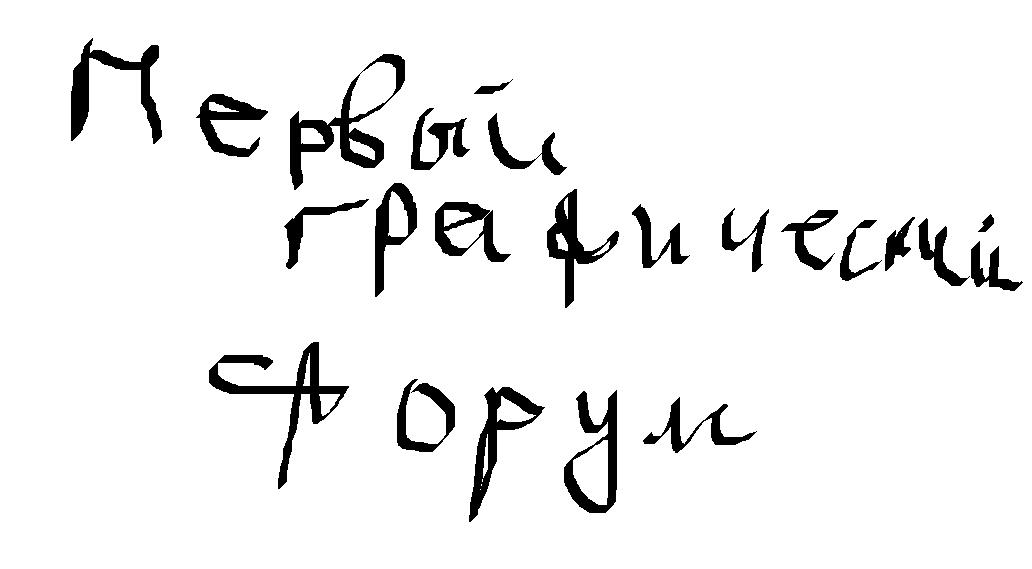 Первый
графический
Форум